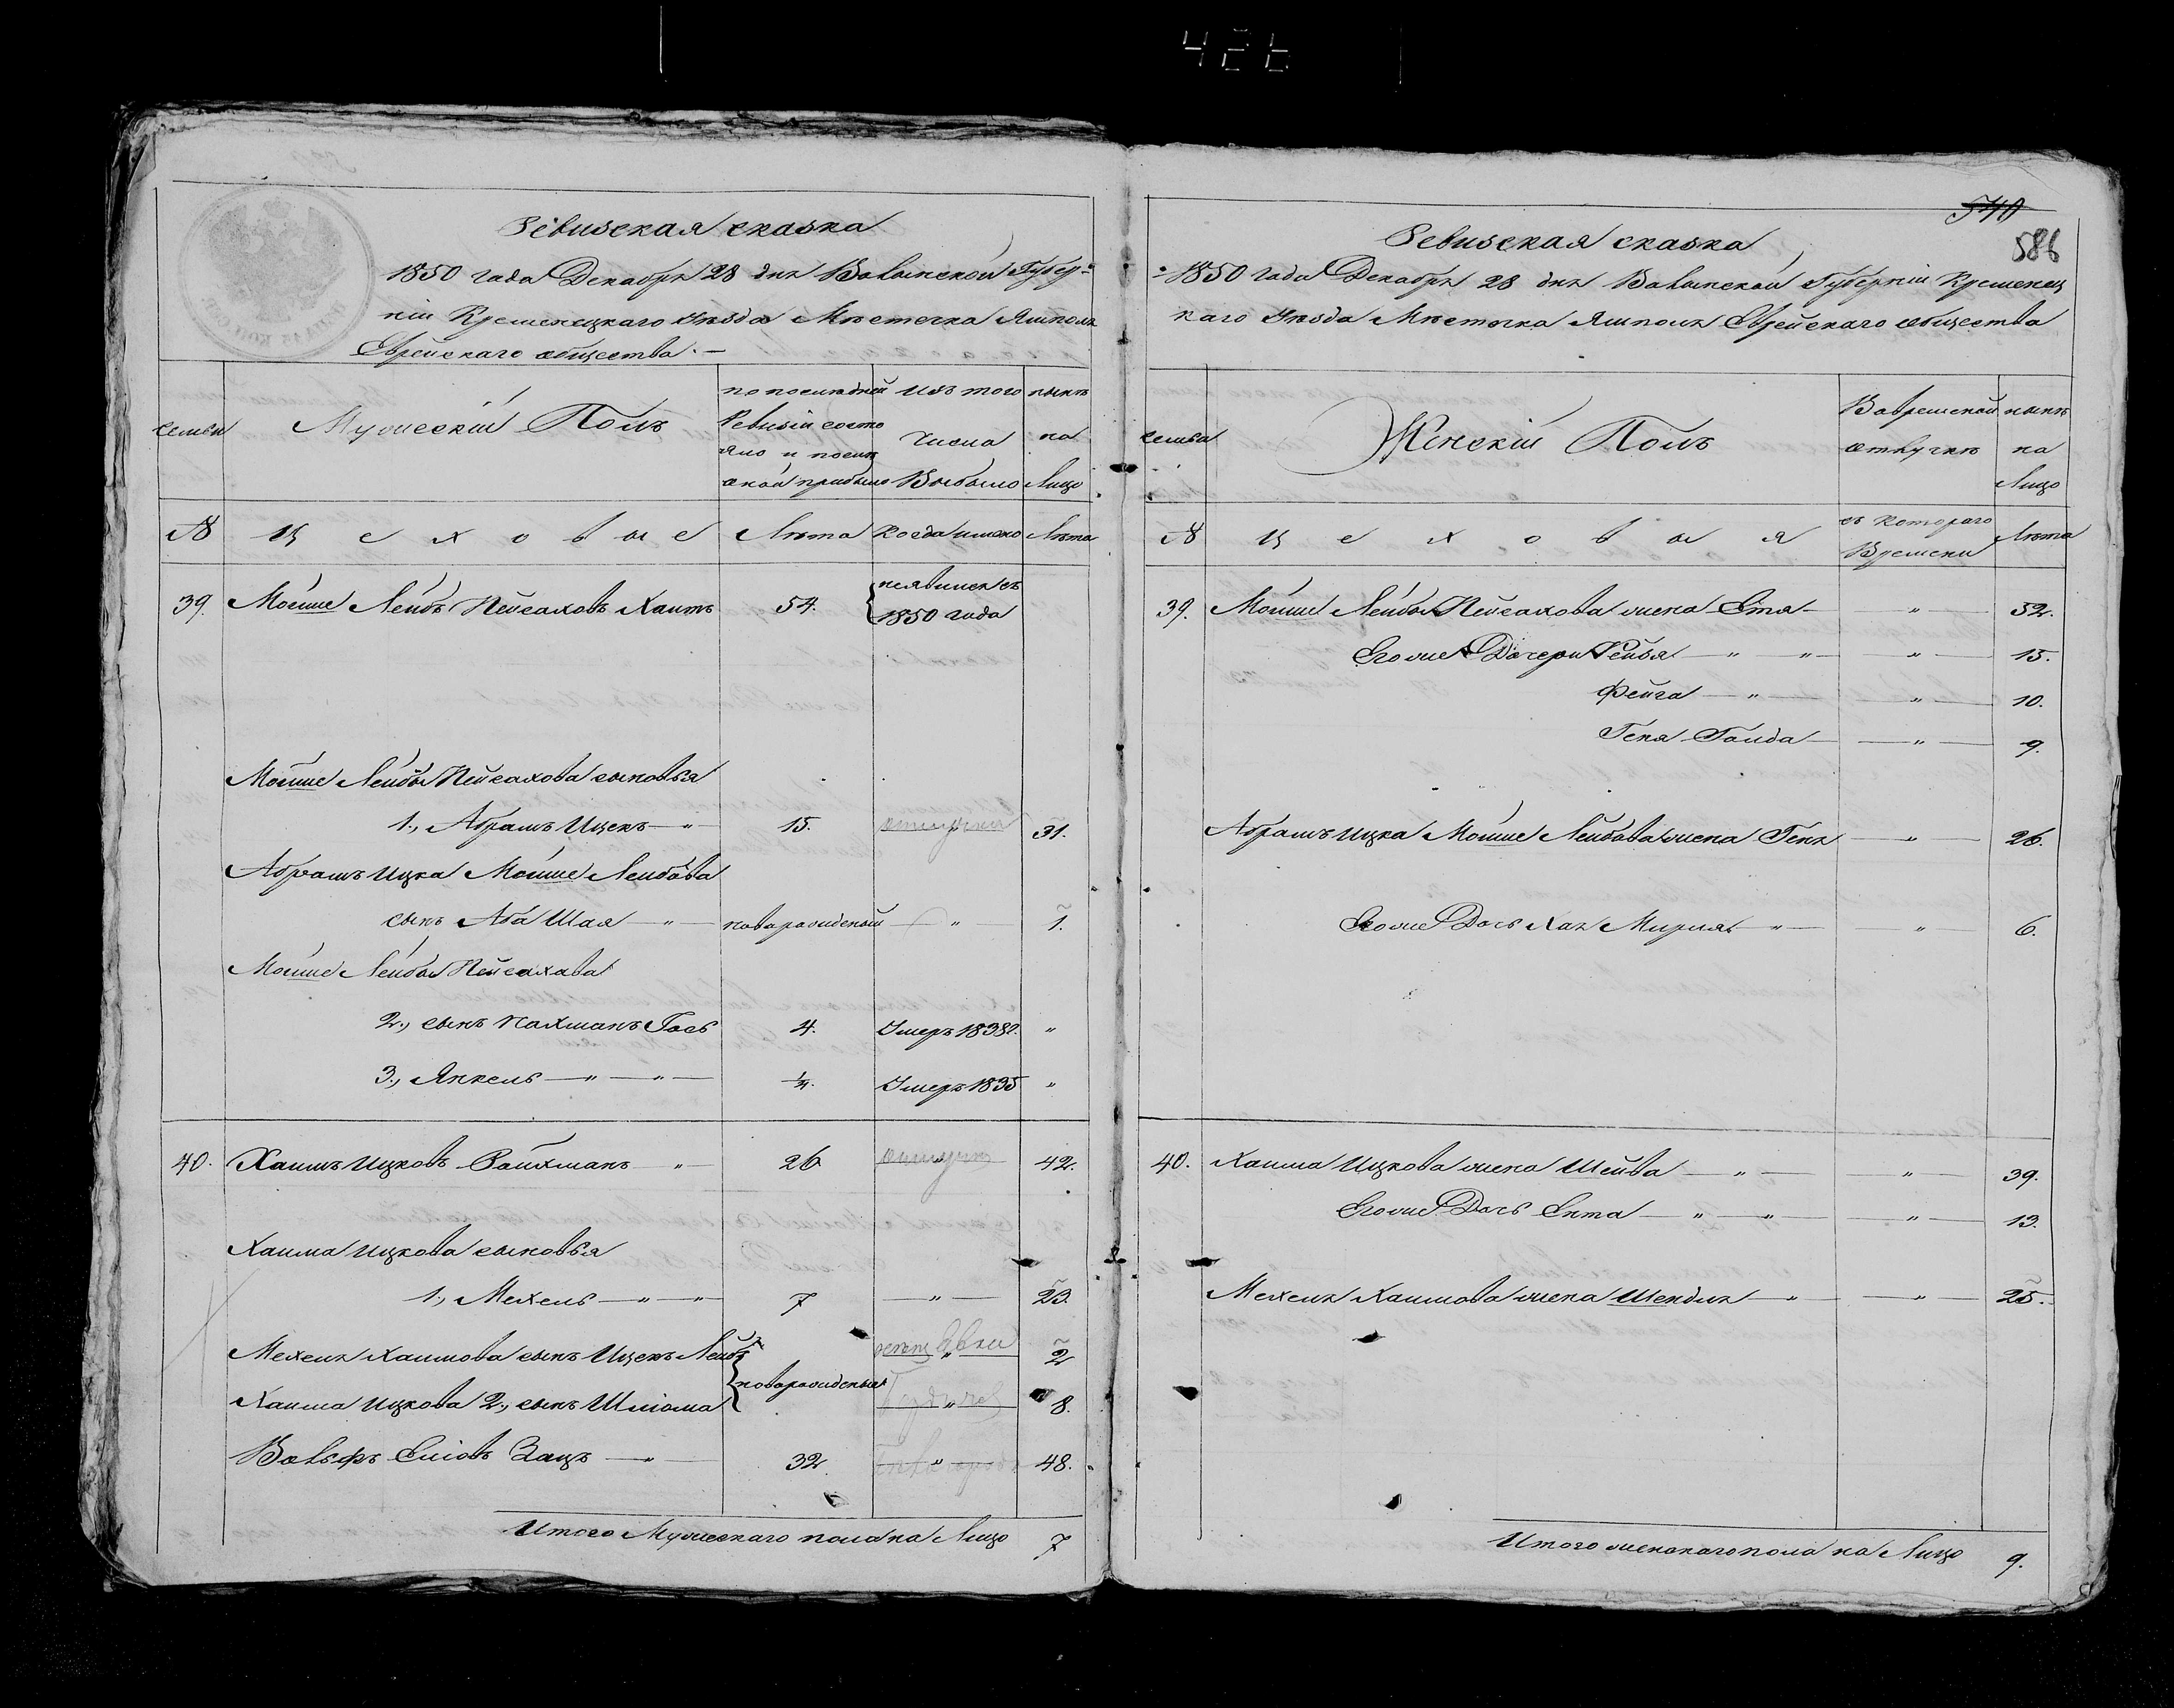 426
Ревизская сказка
1850 года Декабря 28 дня Волынской Губер-
ніи Кременецкаго уѣзда Мѣстечка Ямполя
Еврейскаго общества.
семьи
Мужескій Полъ
по послѣдней
Ревизіи состо
яло и послѣ
оной прибыло
Изъ того
числа
Выбыло
нынѣ
на
Лицо
№
Ц е х о в ы е
Лѣта
Когда имяно
Лѣта
39. Мошше Лейбъ Пейсаховъ Хаитъ 54. неявился съ
1850 года
Мошше Лейбы Пейсахова сыновья
1., Абрамъ Ицекъ — " — 15. 31.
Абрамъ Ицка Мошше Лейбова
сынъ Аба Шая — " — новорожденый — " — 1.
Мошше Лейбы Пейсахова
2., сынъ Нахманъ Гось 4. Умеръ 1838г. "
3., Янкель — " — " — 1/4. Умеръ 1835 "
40. Хаимъ Ицковъ Ройхманъ " — 26 42.
Хаима Ицкова сыновья
1., Мехель — " — " 7 — " — 23.
Мехеля Хаимова сынъ Ицекъ Лейбъ " 2
новорожденые
Хаима Ицкова 2., сынъ Шліома " 8.
Вольфъ Еліовъ Зацъ — " — 32. — " — 48.
Итого Мужескаго пола на Лицо 7
540
586
Ревизская сказка
1850 года Декабря 28 дня Волынской Губерніи Кременец
каго уѣзда Мѣстечка Ямполя Еврейскаго общества
семьи
Женскій Полъ
Вовременой
отлучкѣ
нынѣ
на
Лицо
№
Ц е х о в ы я
съ котораго
Времени
Лѣта
39. Мошше Лейбы Пейсахова жена Етя — " — 52.
Егоже Дочери Рейзя — " — " — " — 15.
Фейга — " — " — 10.
Геня Голда — " — 9.
Абрамъ Ицка Мошше Лейбова жена Геня — " — 26.
Егоже Дочь Хая Мирля — " — " — 6.
40. Хаима Ицкова жена Шейва — " — " — 39.
Егоже Дочь Ента — " — " — " — 13.
Мехеля Хаимова жена Шендля — " — " — 25.
Итого женскаго пола на Лицо 9.